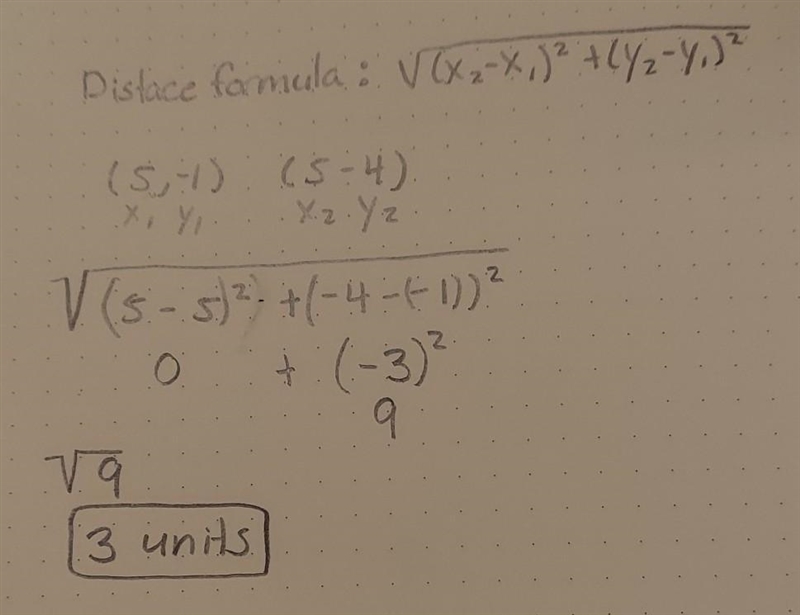 Distace formula: √(x₂-x₁)² + (y₂-y₁)²
(5,-1) (5-4)
x₁ y₁ x₂ y₂
√(5-5)² + (-4-(-1))²
0 + (-3)²
9
√9
3 units